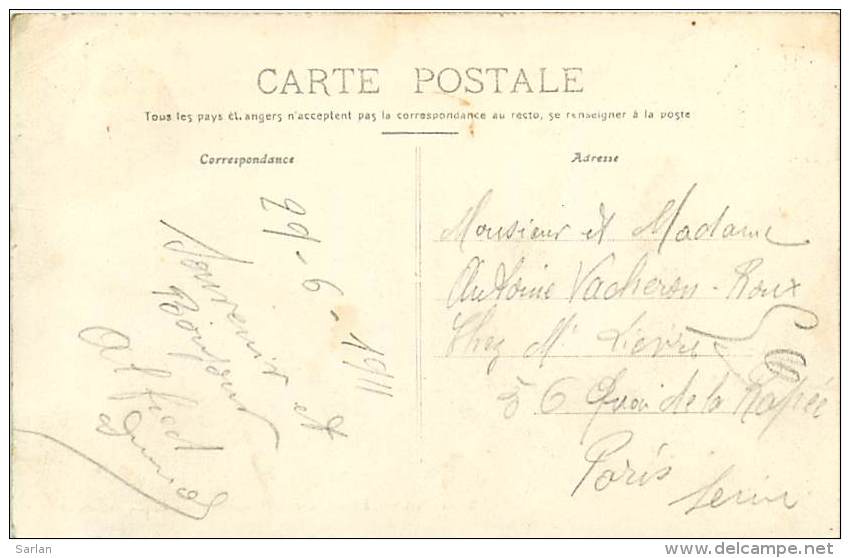 CARTE POSTALE
Tous les pays étrangers n'acceptent pas la correspondance au recto, se renseigner à la poste
Correspondance
Adresse
29-6-1911
Souvenir et
Bonjour
Alfred
Monsieur et Madame
Antoine Vacheron-Roux
Chez Mr Lievre
56 Quai de la Rapée
Paris
Seine
Sarlan
http://www.delcampe.net